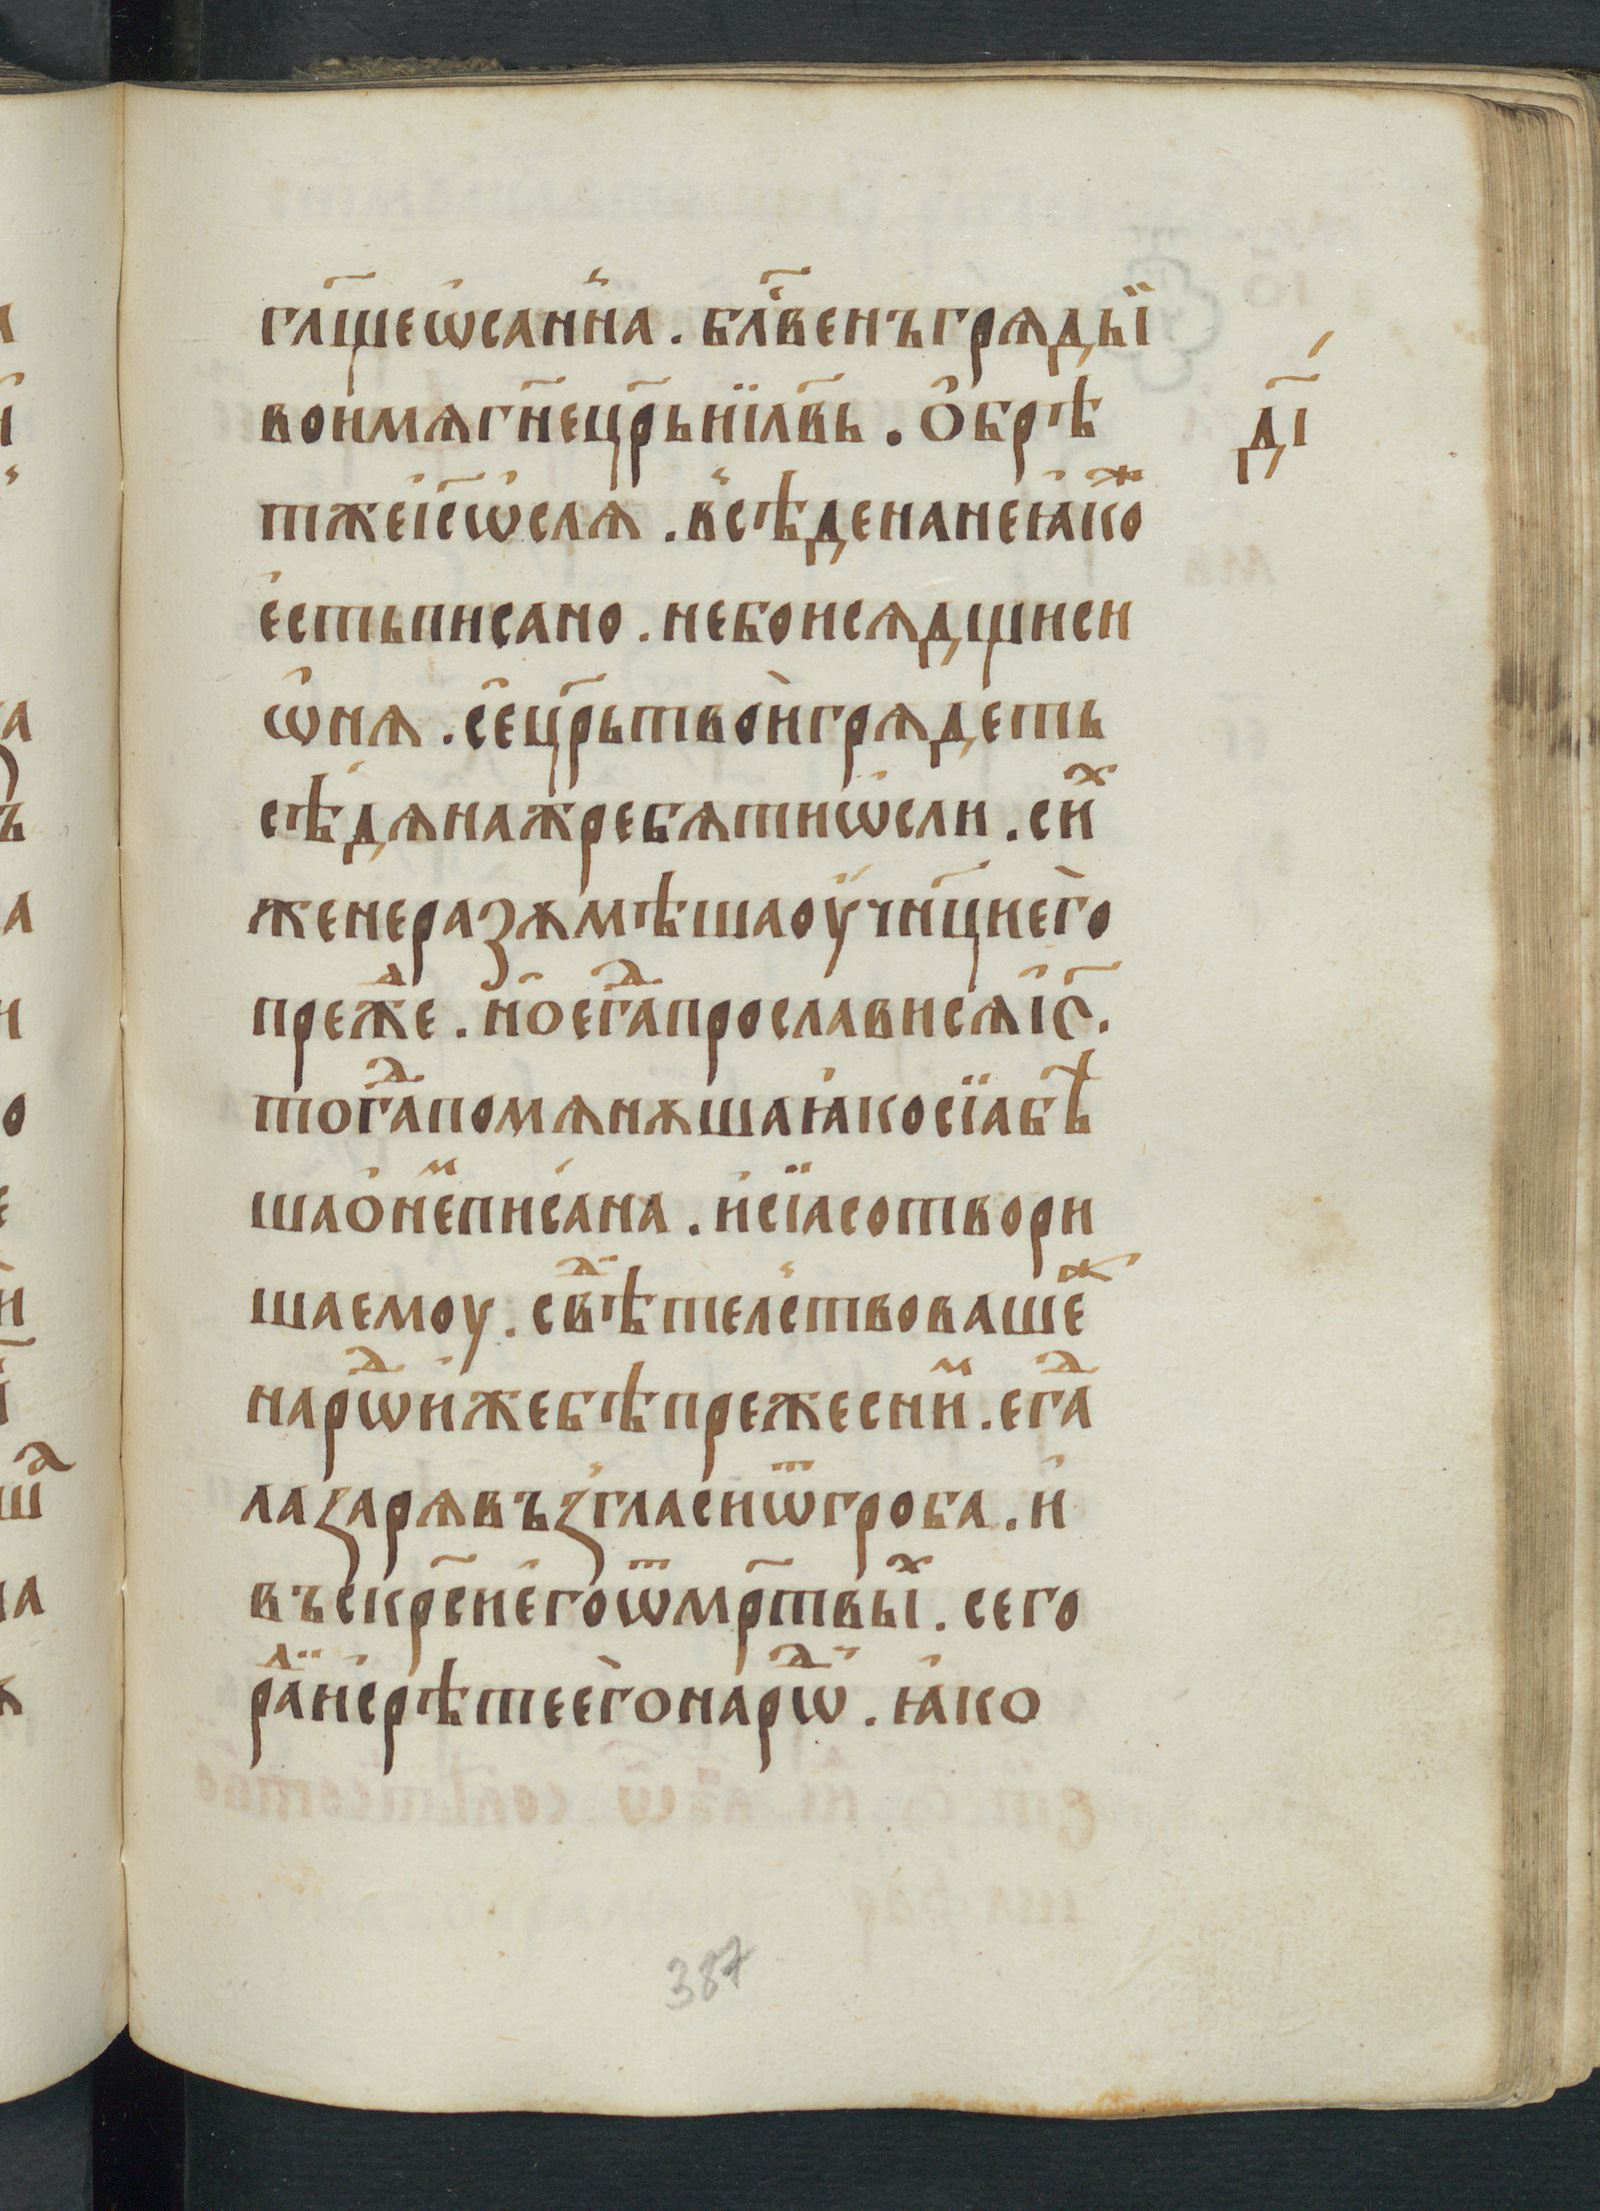 гл҃щеѡсан̾на . бл҃ве́нъгрѧды́й
воимѧгн҃ецр҃ьиїл҃вь . ѻ҆брѣ
тжеі҆с҃ѡ҆слѧ . в̾сѣденанеꙗ҆ⷤко
є҆стьписано . небоисѧдщиси
ѡ҆нѧ . се҆цр҃ьтвоѝгрѧде́ть
сѣдѧнажребѧтиѡ҆сли . сиⷯ
женеразѫмѣшаоу҆чн҃циегѝо
преⷤде . но҆егⷣапрослависѧі҆с҃ .
тогⷣапомѧнѫшаꙗ҆косїабѣ
шаѻ҆неⷨпи́сана . и҆сїасотвори
шаемоу . свⷣѣтел̾ствовашеⷤ
нарѡⷣи҆жебѣпрежесниⷨ . егⷣа
лаꙁарѧвъꙁ̾гласиѿгроба . и҆
въскр҃сие҆гоѿмр҃твыⷯ . сего
раⷣии҆срѣтеего̀нарѡⷣ . ꙗ҆ко
д҃і
387